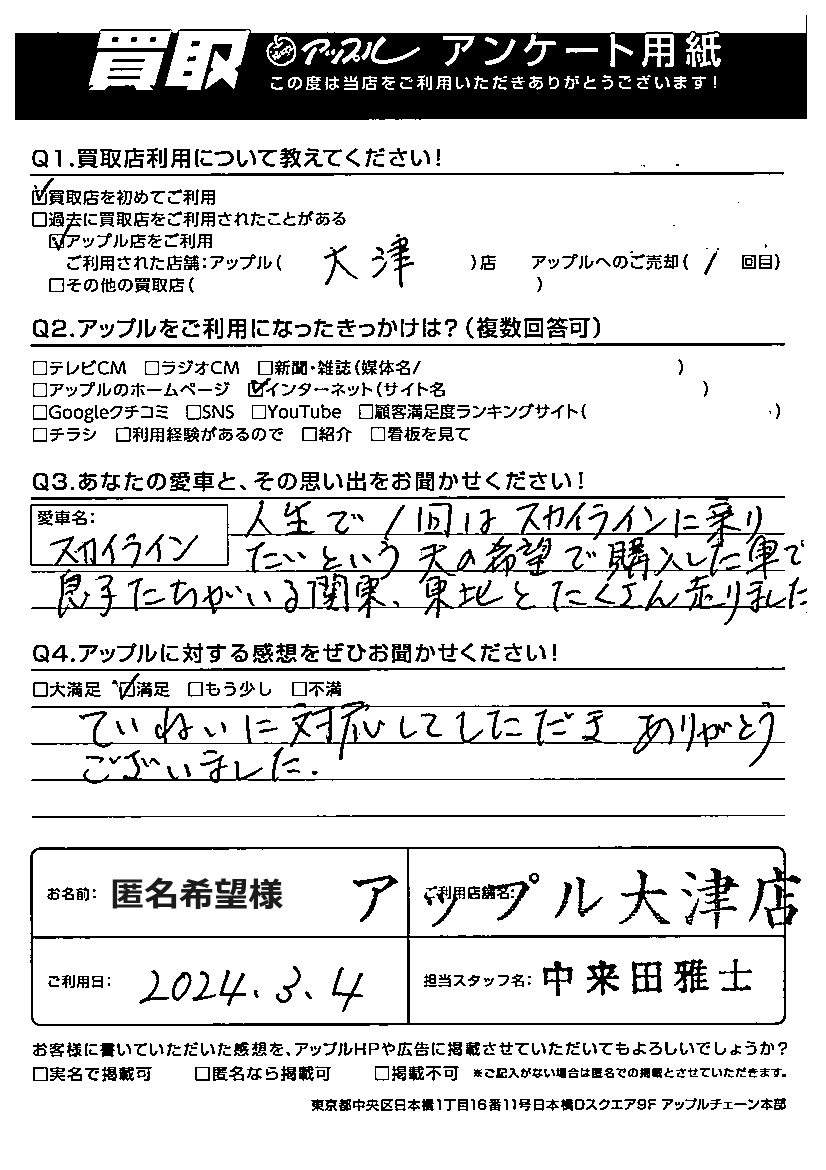 買取 アップル アンケート用紙
この度は当店をご利用いただきありがとうございます!
Q1.買取店利用について教えてください!
☑買取店を初めてご利用
□過去に買取店をご利用されたことがある
☑アップル店をご利用
ご利用された店舗:アップル( 大津 )店 アップルへのご売却( 1 回目)
□その他の買取店( )
Q2.アップルをご利用になったきっかけは?(複数回答可)
□テレビCM □ラジオCM □新聞・雑誌(媒体名/ )
□アップルのホームページ ☑インターネット(サイト名 )
□Googleクチコミ □SNS □YouTube □顧客満足度ランキングサイト( )
□チラシ □利用経験があるので □紹介 □看板を見て
Q3.あなたの愛車と、その思い出をお聞かせください!
愛車名:
スカイライン
人生で1回はスカイラインに乗り
たいという夫の希望で購入した車で
息子たちがいる関東、東北とたくさん走りました
Q4.アップルに対する感想をぜひお聞かせください!
□大満足 ☑満足 □もう少し □不満
ていねいに対応してしただき ありがとう
ございました.
お名前: 匿名希望様
ご利用店舗名: アップル大津店
ご利用日: 2024.3.4
担当スタッフ名: 中来田雅士
お客様に書いていただいた感想を、アップルHPや広告に掲載させていただいてもよろしいでしょうか?
□実名で掲載可 □匿名なら掲載可 □掲載不可 ※ご記入がない場合は匿名での掲載とさせていただきます。
東京都中央区日本橋1丁目16番11号日本橋Dスクエア9F アップルチェーン本部